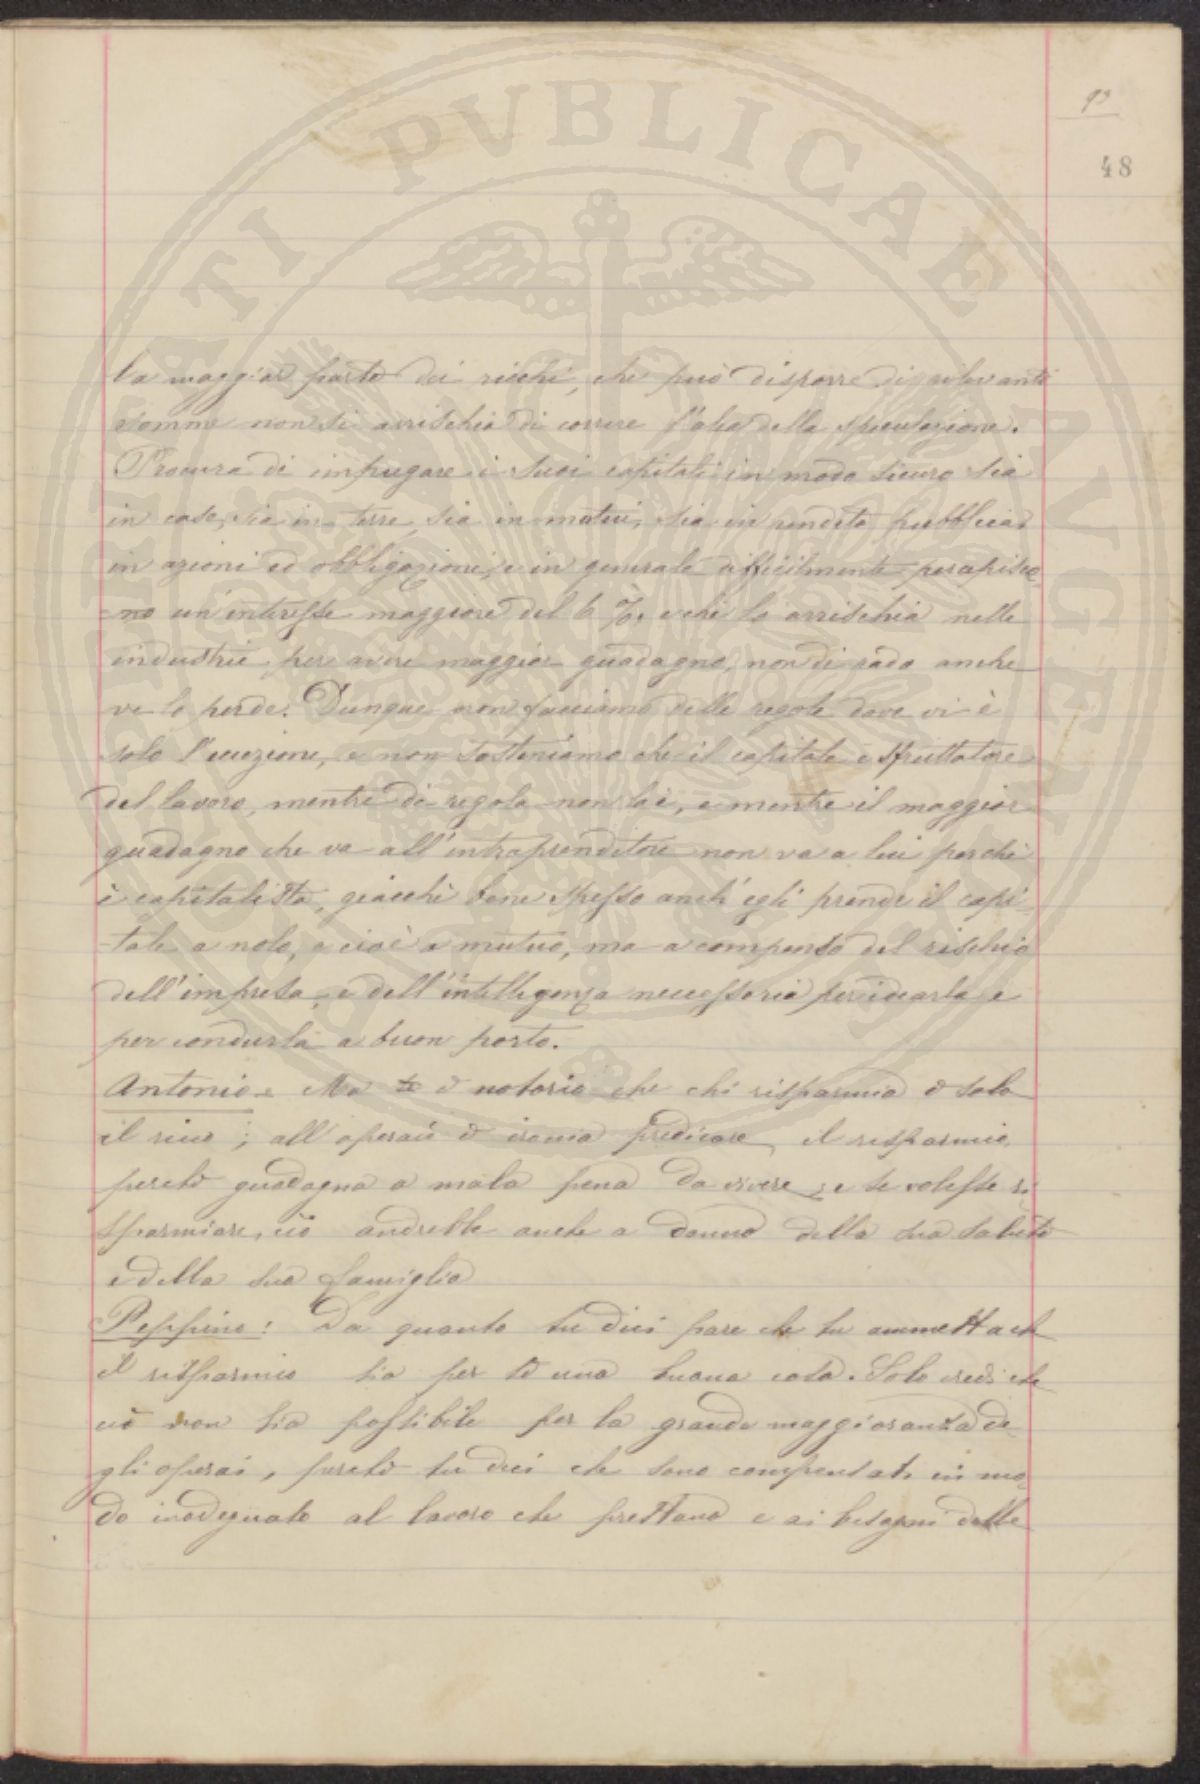 95
48
PVBLICAE
AVGEN
la maggior parte dei ricchi, che può disporre di rilevanti
somme non si arrischia di correre l'alea della speculazione.
Procura di impiegare i suoi capitali in modo sicuro sia
in case, sia in terre, sia in mutui, sia in rendita pubblica,
in azioni ed obbligazioni, e in generale difficilmente percepisco
no un'interesse maggiore del 6 %, e chi lo arrischia nelle
industrie per avere maggior guadagno, non di rado anche
ve lo perde. Dunque non facciamo delle regole dove vi è
solo l'eccezione, e non sosteniamo che il capitale è sfruttatore
del lavoro, mentre di regola non lo è, e mentre il maggior
guadagno che va all'intraprenditore non va a lui perché
è capitalista, giacché bene spesso anch'egli prende il capi-
tale a nolo, e cioè a mutuo, ma a compenso del rischio
dell'impresa, e dell'intelligenza necessaria per idearla e
per condurla a buon porto.
Antonio. Ma è notorio che chi risparmia è solo
il ricco; all'operaio è ironia predicare il risparmio,
perchè guadagna a mala pena da vivere; e se volesse ri
sparmiare, ciò andrebbe anche a danno della sua salute
e della sua famiglia
Peppino: Da quanto tu dici pare che tu ammetta che
il risparmio sia per sè una buona cosa. Solo credi che
ciò non sia possibile per la grande maggioranza de
gli operai, perchè tu dici che sono compensati in mo
do inadeguato al lavoro che prestano e ai bisogni delle